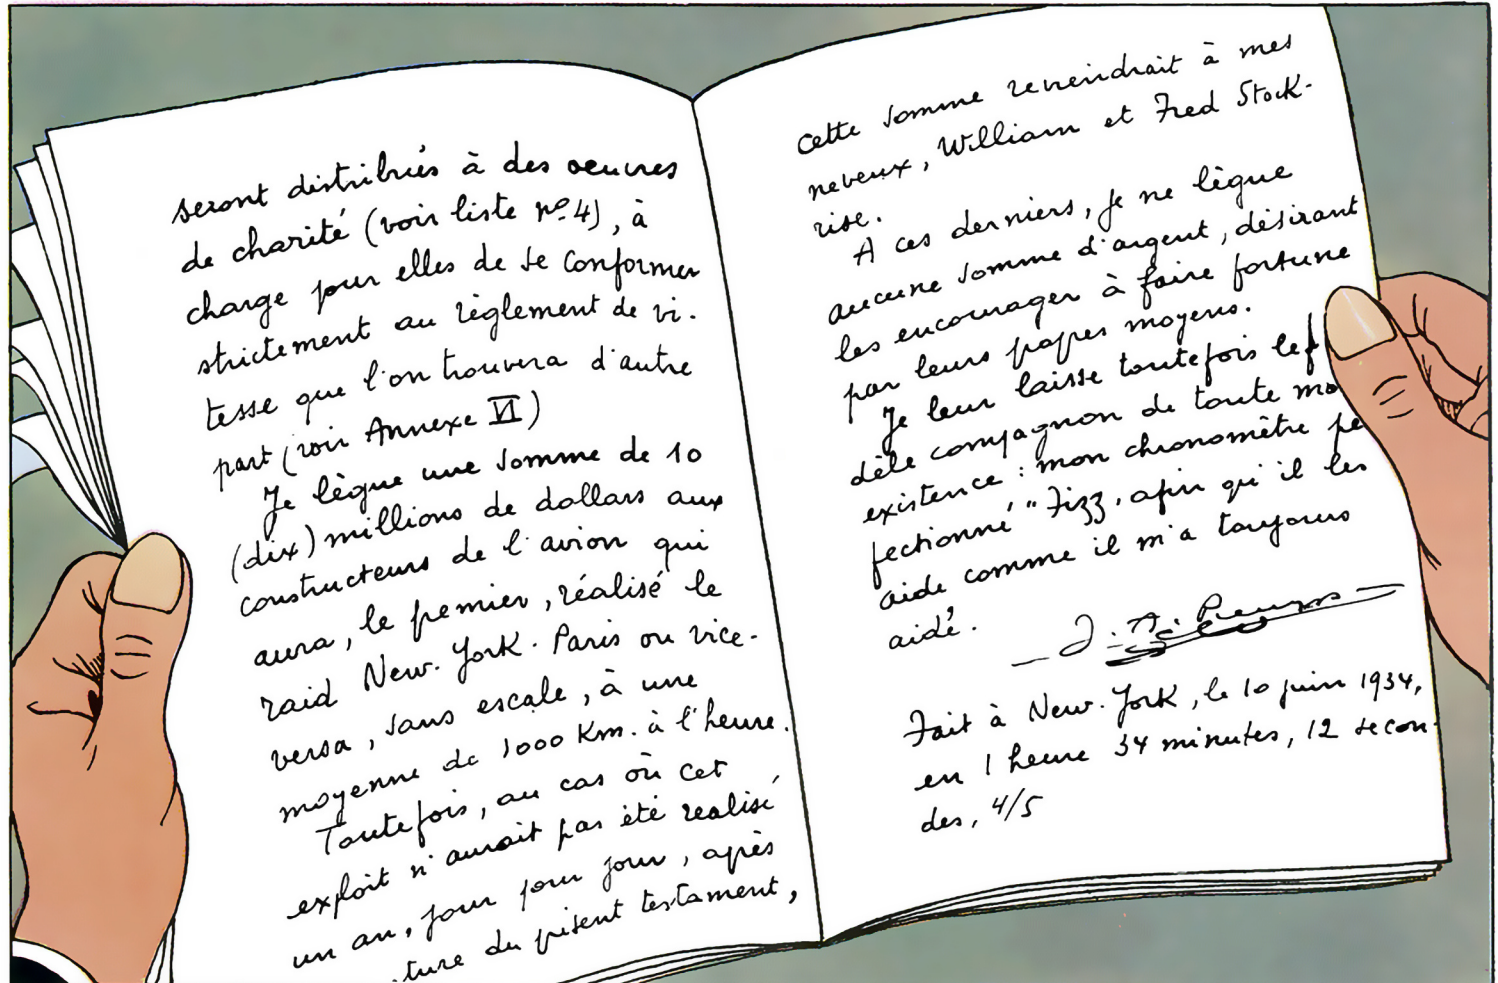 seront distribués à des oeuvres
de charité (voir liste nº 4), à
charge pour elles de se conformer
strictement au règlement de vi-
tesse que l'on trouvera d'autre
part (voir Annexe VI)
Je lègue une somme de 10
(dix) millions de dollars aux
constructeurs de l'avion qui
aura, le premier, réalisé le
raid New-York-Paris ou vice-
versa, sans escale, à une
moyenne de 1000 Km. à l'heure.
Toutefois, au cas où cet
exploit n'aurait pas été réalisé
un an, jour pour jour, après
ture du présent testament,
cette somme reviendrait à mes
neveux, William et Fred Stock-
rise.
A ces derniers, je ne lègue
aucune somme d'argent, désirant
les encourager à faire fortune
par leurs propres moyens.
Je leur laisse toutefois le f
dèle compagnon de toute mo
existence : mon chronomètre pe
fectionné "Fizz, afin qu'il les
aide comme il m'a toujours
aidé.
Fait à New-York, le 10 juin 1934,
en 1 heure 34 minutes, 12 secon-
des, 4/5